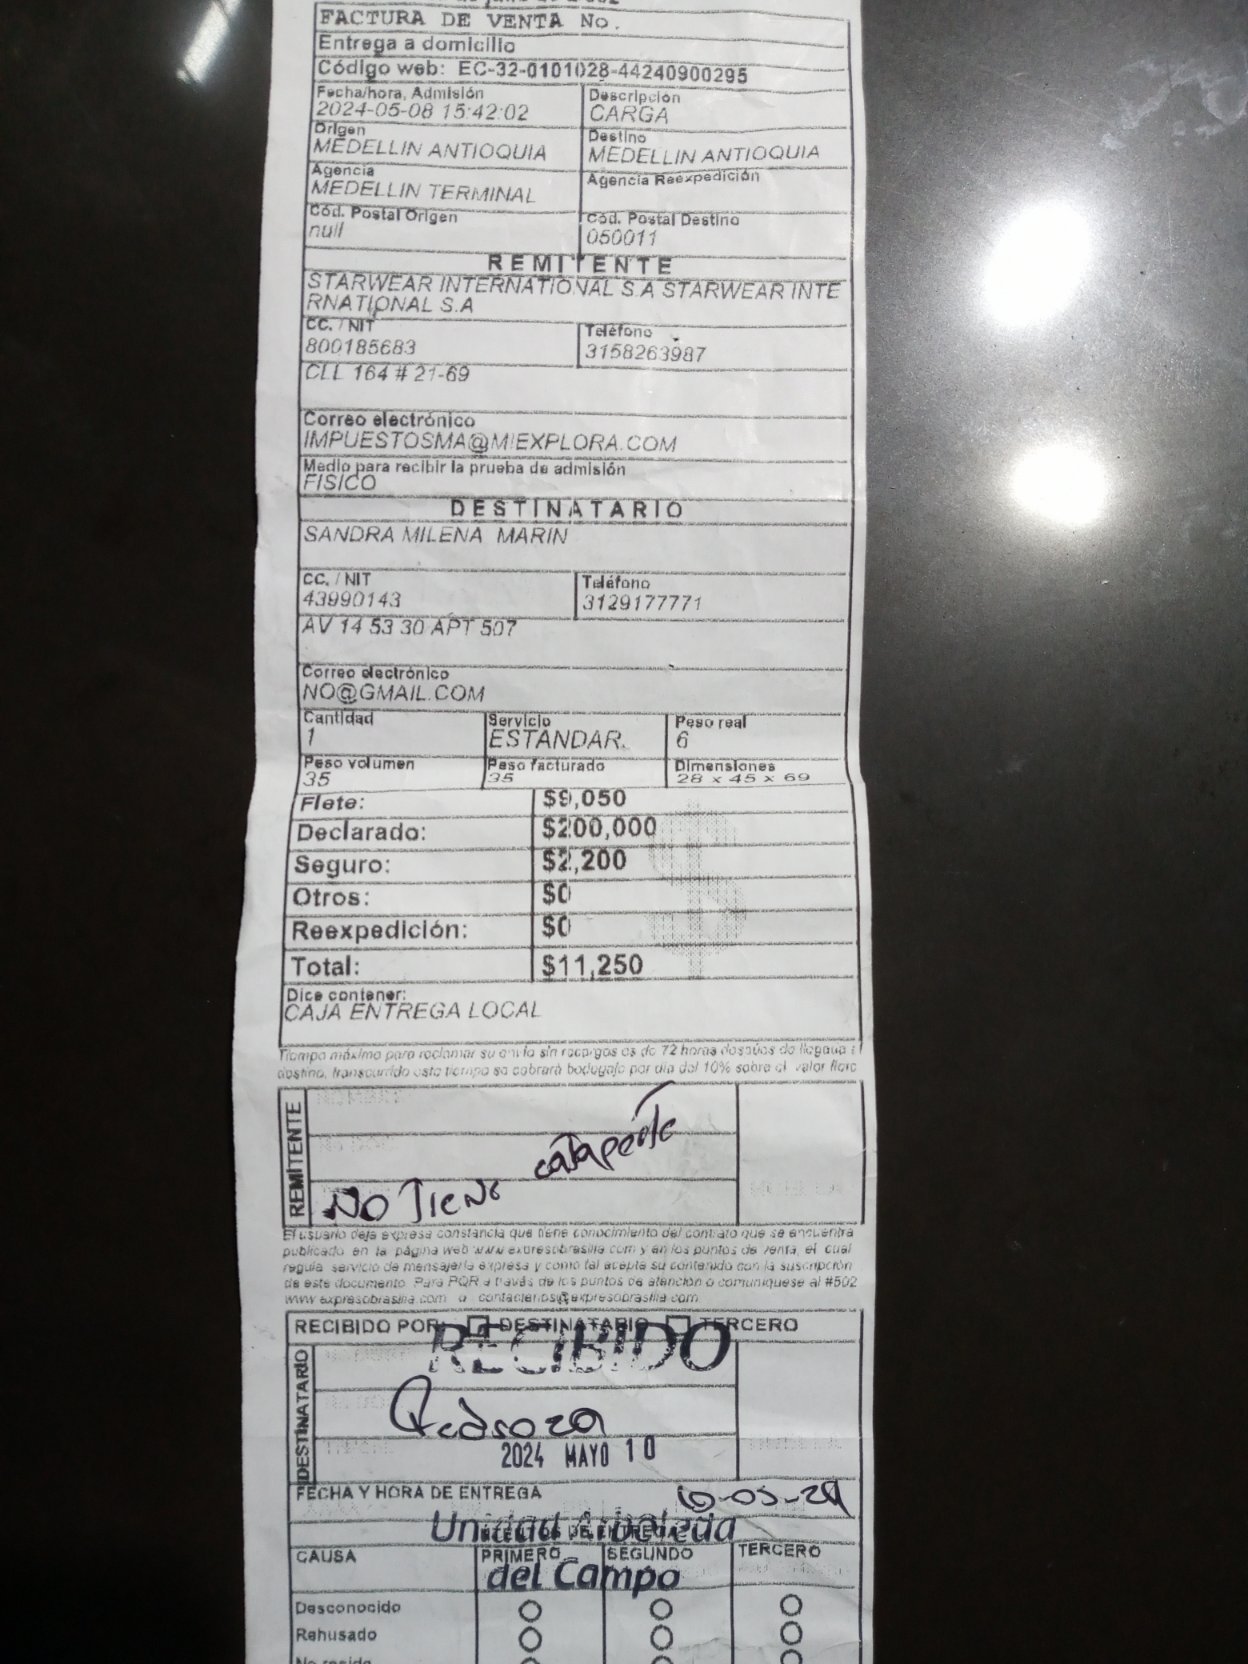 FACTURA DE VENTA No.
Entrega a domicilio
Código web: EC-32-0101028-44240900295
Fecha/hora, Admisión
2024-05-08 15:42:02
Descripción
CARGA
Origen
MEDELLIN ANTIOQUIA
Destino
MEDELLIN ANTIOQUIA
Agencia
MEDELLIN TERMINAL
Agencia Reexpedición
Cód. Postal Origen
null
Cód. Postal Destino
050011
REMITENTE
STARWEAR INTERNATIONAL S.A STARWEAR INTE
RNATIONAL S.A
CC. / NIT
800185683
Teléfono
3158263987
CLL 164 # 21-69
Correo electrónico
IMPUESTOSMA@MIEXPLORA.COM
Medio para recibir la prueba de admisión
FISICO
DESTINATARIO
SANDRA MILENA MARIN
CC. / NIT
43990143
Teléfono
3129177771
AV 14 53 30 APT 507
Correo electrónico
NO@GMAIL.COM
Cantidad
1
Servicio
ESTANDAR.
Peso real
6
Peso volumen
35
Peso facturado
35
Dimensiones
28 x 45 x 69
Flete: $9,050
Declarado: $200,000
Seguro: $2,200
Otros: $0
Reexpedición: $0
Total: $11,250
Dice contener:
CAJA ENTREGA LOCAL
Tiempo máximo para reclamar su envío sin recargos es de 72 horas después de llegada a
destino, transcurrido este tiempo se cobrará bodegaje por día del 10% sobre el valor flete
REMITENTE
NO Tiene
El usuario deja expresa constancia que tiene conocimiento del contrato que se encuentra
publicado en la página web www.expresobrasilia.com y en los puntos de venta, el cual
regula servicio de mensajería expresa y como tal acepta su contenido con la suscripción
de este documento. Para PQR a través de los puntos de atención o comuníquese al #502
www.expresobrasilia.com o contactenos@expresobrasilia.com
RECIBIDO POR: DESTINATARIO TERCERO
RECIBIDO
DESTINATARIO
Pedroza
2024 MAYO 10
FECHA Y HORA DE ENTREGA
10-05-24
Unidad Arboleda
del Campo
CAUSA PRIMERO SEGUNDO TERCERO
Desconocido
Rehusado
No reside